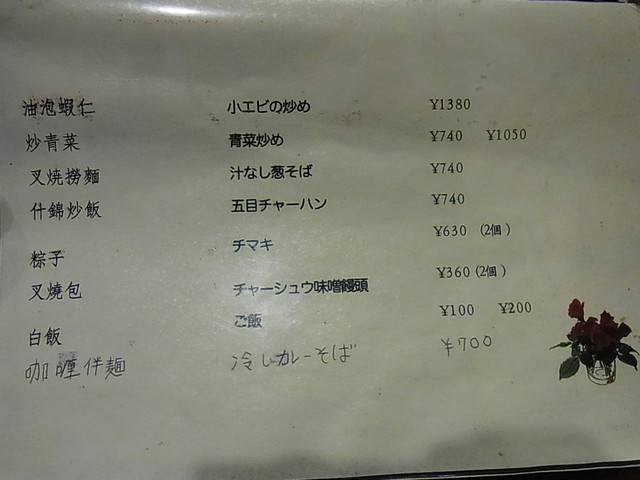 油泡蝦仁 小エビの炒め ¥1380
炒青菜 青菜炒め ¥740 ¥1050
叉焼撈麵 汁なし葱そば ¥740
什錦炒飯 五目チャーハン ¥740
粽子 チマキ ¥630 (2個)
叉燒包 チャーシュウ味噌饅頭 ¥360(2個)
白飯 ご飯 ¥100 ¥200
咖喱伴麺 冷しカレーそば ¥700